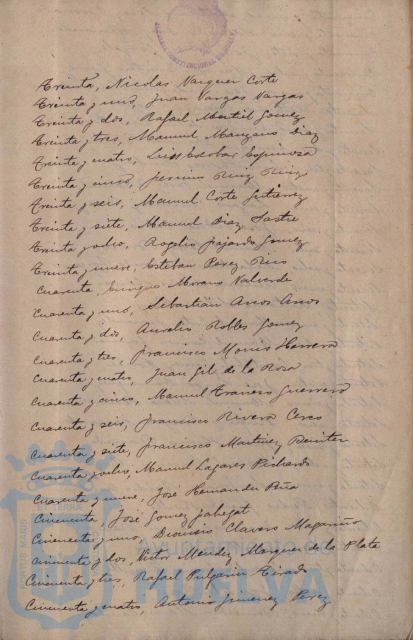 Treinta, Nicolas Vazquez Corte
Treinta y uno, Juan Vargas Vargas
Treinta y dos, Rafael Martil Gomez
Treinta y tres, Manuel Manzano Diaz
Treinta y cuatro, Luis Escobar Espinoza
Treinta y cinco, Jeronimo Ruiz Ruiz
Treinta y seis, Manuel Corte Gutierrez
Treinta y siete, Manuel Diaz Sastre
Treinta y ocho, Rogelio Fajardo Gomez
Treinta y nueve, Esteban Perez Rico
Cuarenta, Enrique Morano Valverde
Cuarenta y uno, Sebastián Arcos Arcos
Cuarenta y dos, Aurelio Robles Gomez
Cuarenta y tres, Francisco Monis Herrera
Cuarenta y cuatro, Juan Gil de la Rosa
Cuarenta y cinco, Manuel Guerrero
Cuarenta y seis, Francisco Rivera
Cuarenta y siete, Francisco Martinez Benitez
Cuarenta y ocho, Manuel Lagares Pichardo
Cuarenta y nueve, José Hernandez Peña
Cincuenta, José Gomez Jabegat
Cincuenta y uno, Dionisio Clavero Magariño
Cincuenta y dos, Victor Mendez Marquez de la Plata
Cincuenta y tres, Rafael Pulgarin Tirado
Cincuenta y cuatro, Antonio Jimenez Perez
HUELVA